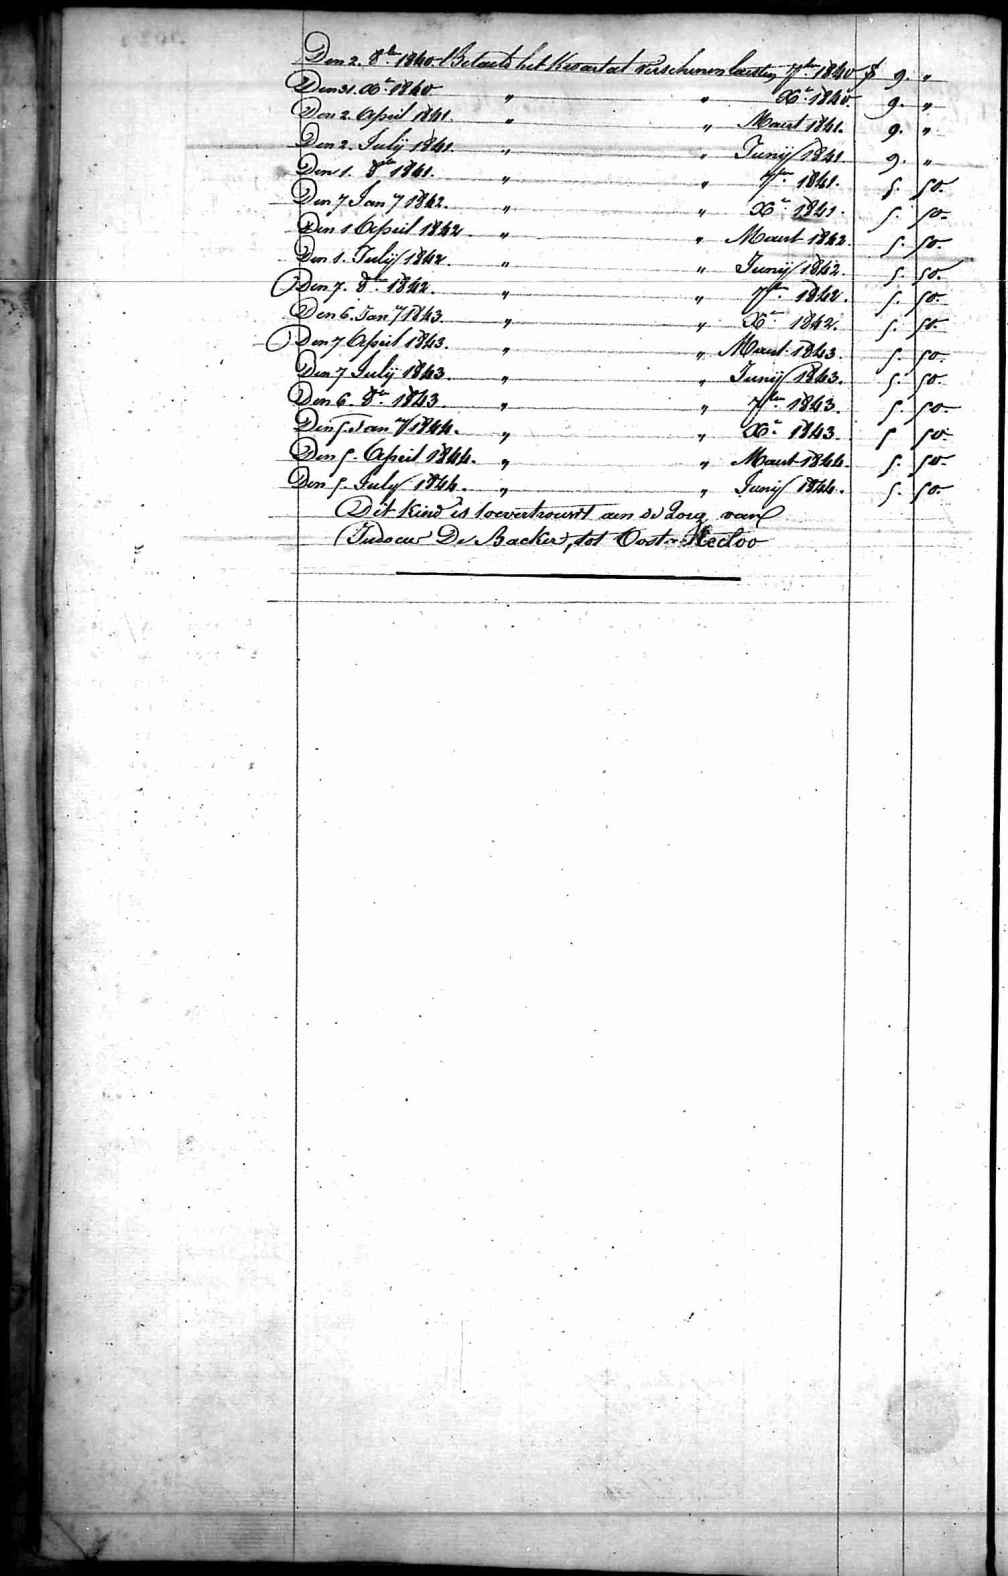 Den 2. 8br 1840. Betaelt het Kwartal verschenen laesten 7ber 1840 f 9. "
Den 31. Xr 1840 " " Xr 1840. 9. "
Den 2. April 1841. " " Maert 1841. 9. "
Den 2. Julij 1841. " " Junij 1841 9. "
Den 1. 8br 1841. " " 7ber 1841. 5. 50.
Den 7 Jany 1842. " " Xr 1841. 5. 50.
Den 1 April 1842 " " Maert 1842 5. 50.
Den 1. July 1842. " " Junij 1842. 5. 50.
Den 7. 8br 1842. " " 7ber 1842. 5. 50.
Den 6. Jany 1843. " " Xr 1842. 5. 50.
Den 7 April 1843. " " Maert 1843. 5. 50.
Den 7 Julij 1843. " " Junij 1843. 5. 50.
Den 6. 8br 1843. " " 7ber 1843. 5. 50.
Den 5. Jany 1844. " " Xr 1843. 5 50.
Den 5. April 1844. " " Maert 1844. 5. 50.
Den 5. July 1844. " " Junij 1844. 5. 50.
Dit kind is toevertrouwt aen de zorg van
Judocus De Backer, tot Oost-Eecloo